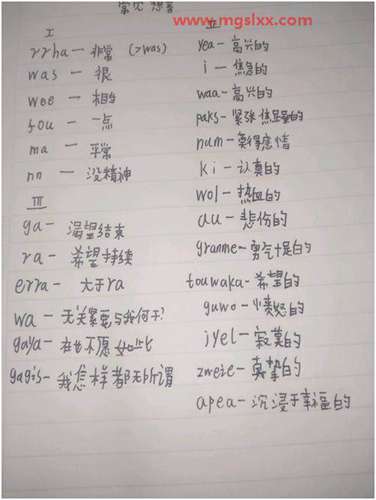 常见想音
www.mgslxx.com
I
rrha — 非常 (>was)
was — 很
wee — 相当
fou — 一点
ma — 平常
nn — 没精神
III
ga — 渴望结束
ra — 希望持续
erra — 大于ra
wa — 无关紧要与我何干?
gaya — 再也不愿如此
gagis — 我怎样都无所谓
II
yea — 高兴的
i — 焦急的
waa — 高兴的
paks — 紧张焦虑的
num — 莫得感情
ki — 认真的
wol — 热血的
au — 悲伤的
granme — 勇气十足的
touwaka — 希望的
guwo — 愤怒的
jyel — 寂寞的
zweie — 真挚的
apea — 沉浸于幸福的